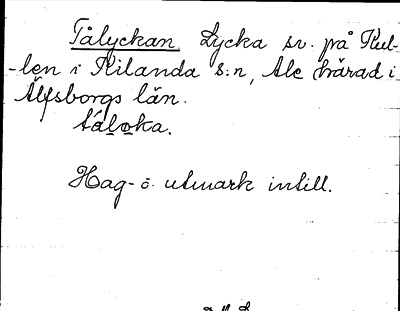 Tålyckan. Lycka sv. på Kul-
-len i Kilanda s:n, Ale härad i
Älfsborgs län.
tåloka.
Hag- o. utmark intill.